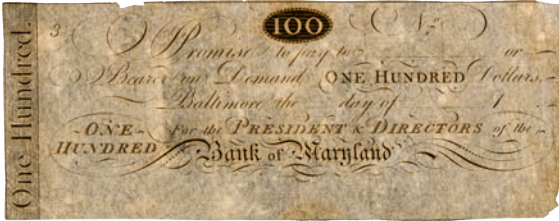 One Hundred.
3
100
No.
I Promise to pay to or
Bearer on Demand ONE HUNDRED Dollars.
Baltimore the day of 1
ONE HUNDRED
For the PRESIDENT & DIRECTORS of the
Bank of Maryland